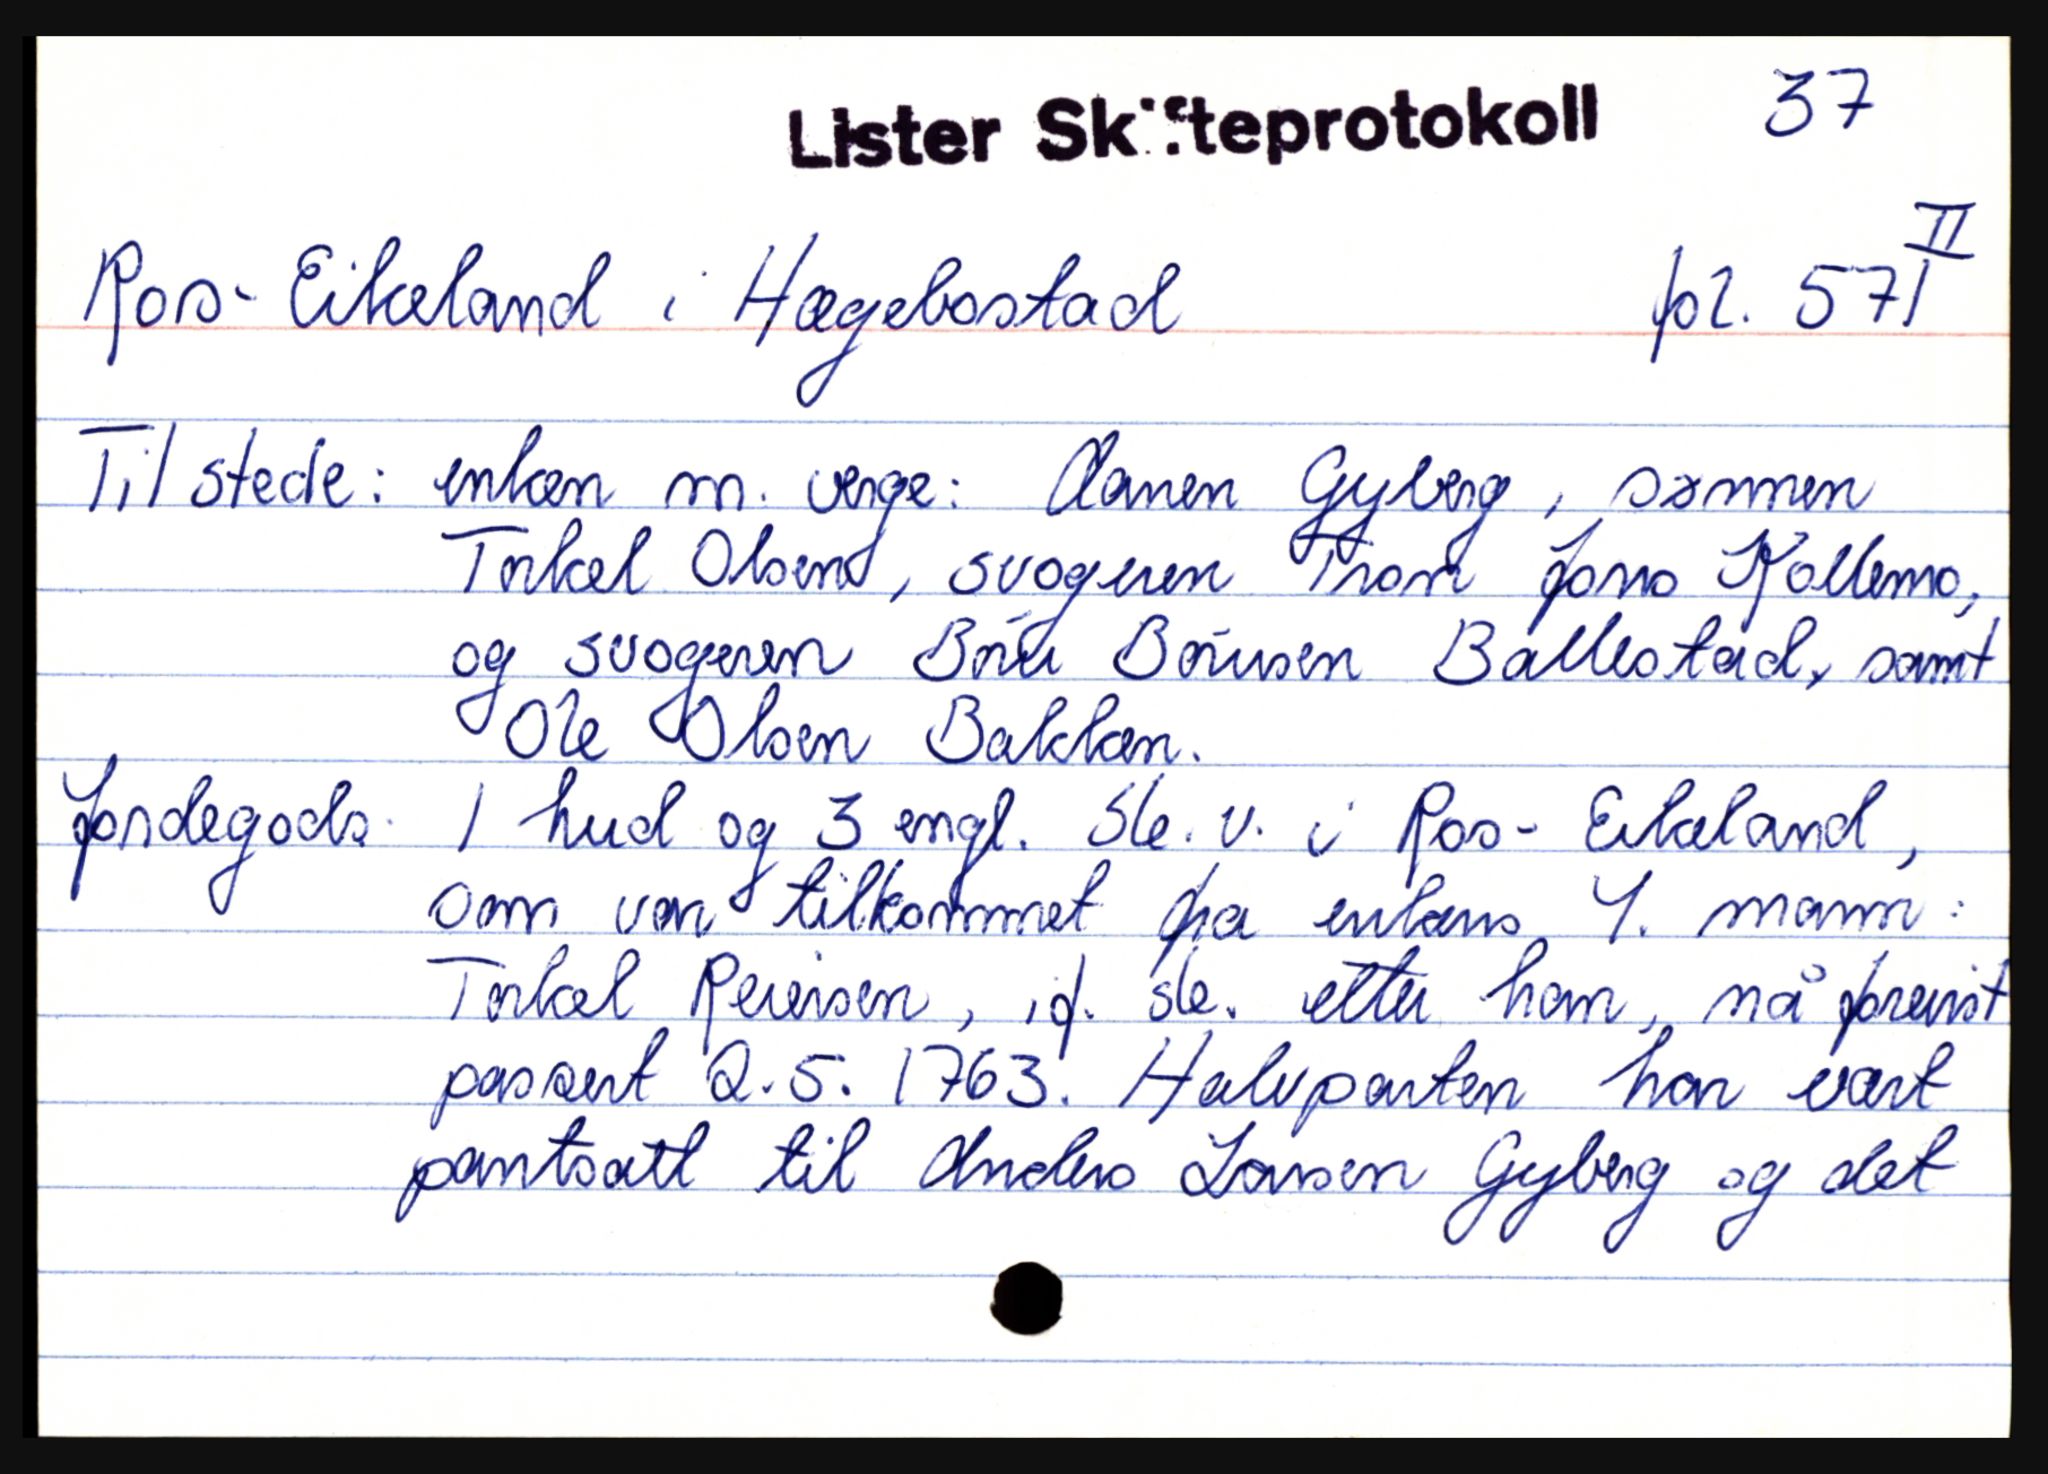 Lister Skifteprotokoll 37
II
Ros-Eikeland i Hægebostad fol. 571
Til stede: enken m. verge: Aanen Gyberg, sønnen
Torkel Olsen, svogeren Tron Jons Kollemo,
og svogeren Böru Börusen Ballestad, samt
Ole Olsen Bakken.
Jordegods. 1 hud og 3 engl. sk. v. i Ros-Eikeland,
som var tilkommet fra enkens 1. mann:
Torkel Reiersen, if. sk. etter ham, nå forevist
passert 2.5.1763. Halvparten har vært
pantsatt til Anders Larsen Gyberg og det